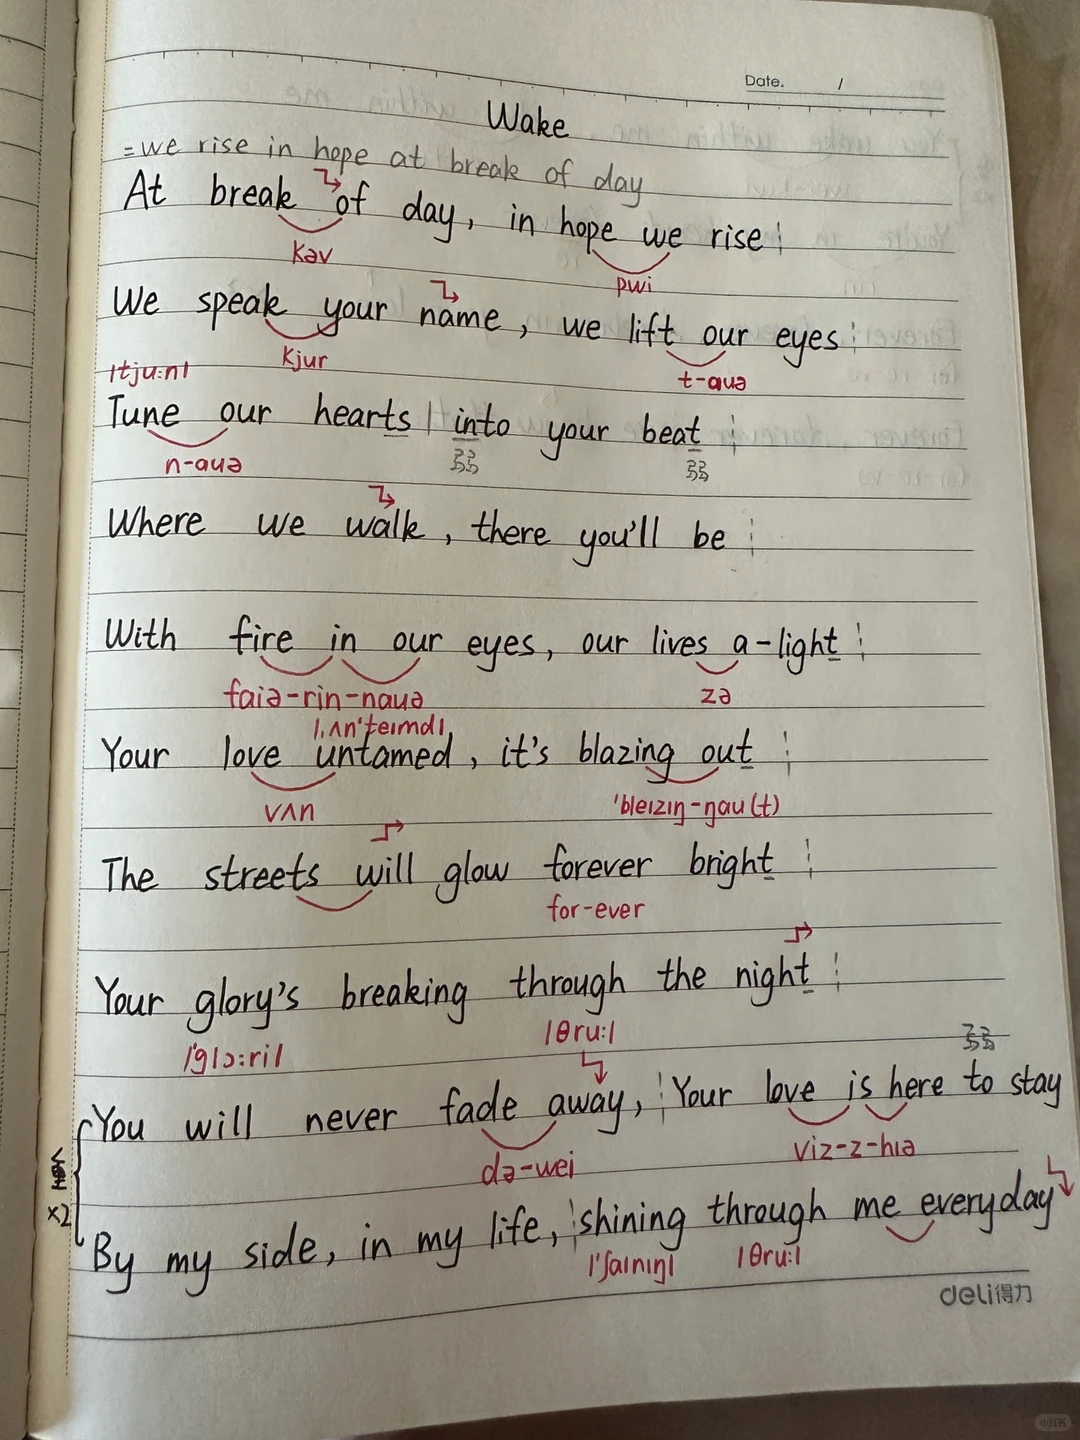 Date. /
Wake
=we rise in hope at break of day
At break of day, in hope we rise
kəv pwi
We speak your name, we lift our eyes
kjur t-auə
/tju:n/
Tune our hearts | into your beat
n-auə 弱 弱
Where we walk, there you'll be
With fire in our eyes, our lives a-light
faiə-rin-nauə zə
/ˌʌn'teɪmd/
Your love untamed, it's blazing out
vʌn 'bleɪzɪŋ-ŋau(t)
The streets will glow forever bright
for-ever
Your glory's breaking through the night
/'glɔ:ri/ /θru:/
弱
You will never fade away, Your love is here to stay
də-wei viz-z-hɪə
x2
By my side, in my life, shining through me everyday
/'ʃaɪnɪŋ/ /θru:/
deli得力
小红书